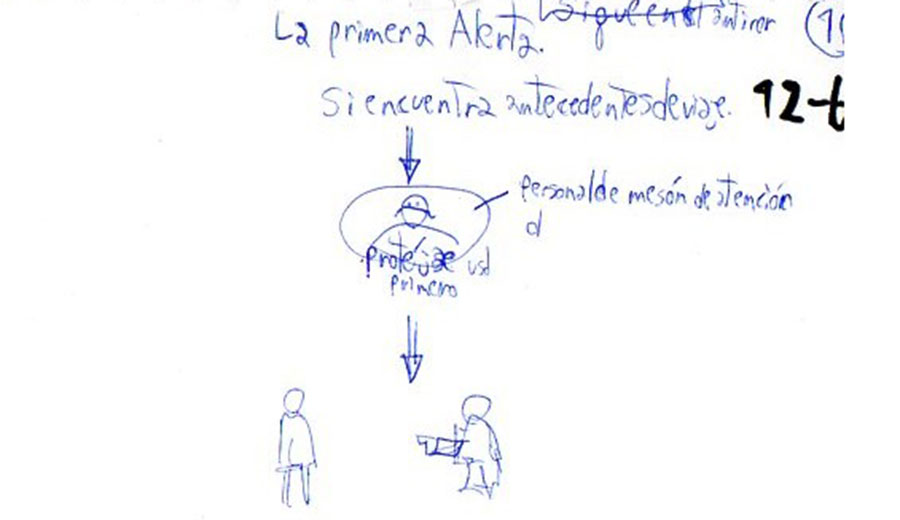 La primera Alerta.
Si encuentra antecedentes de viaje. 12-t
personal de mesón de atención
d
protéjase usd
primero